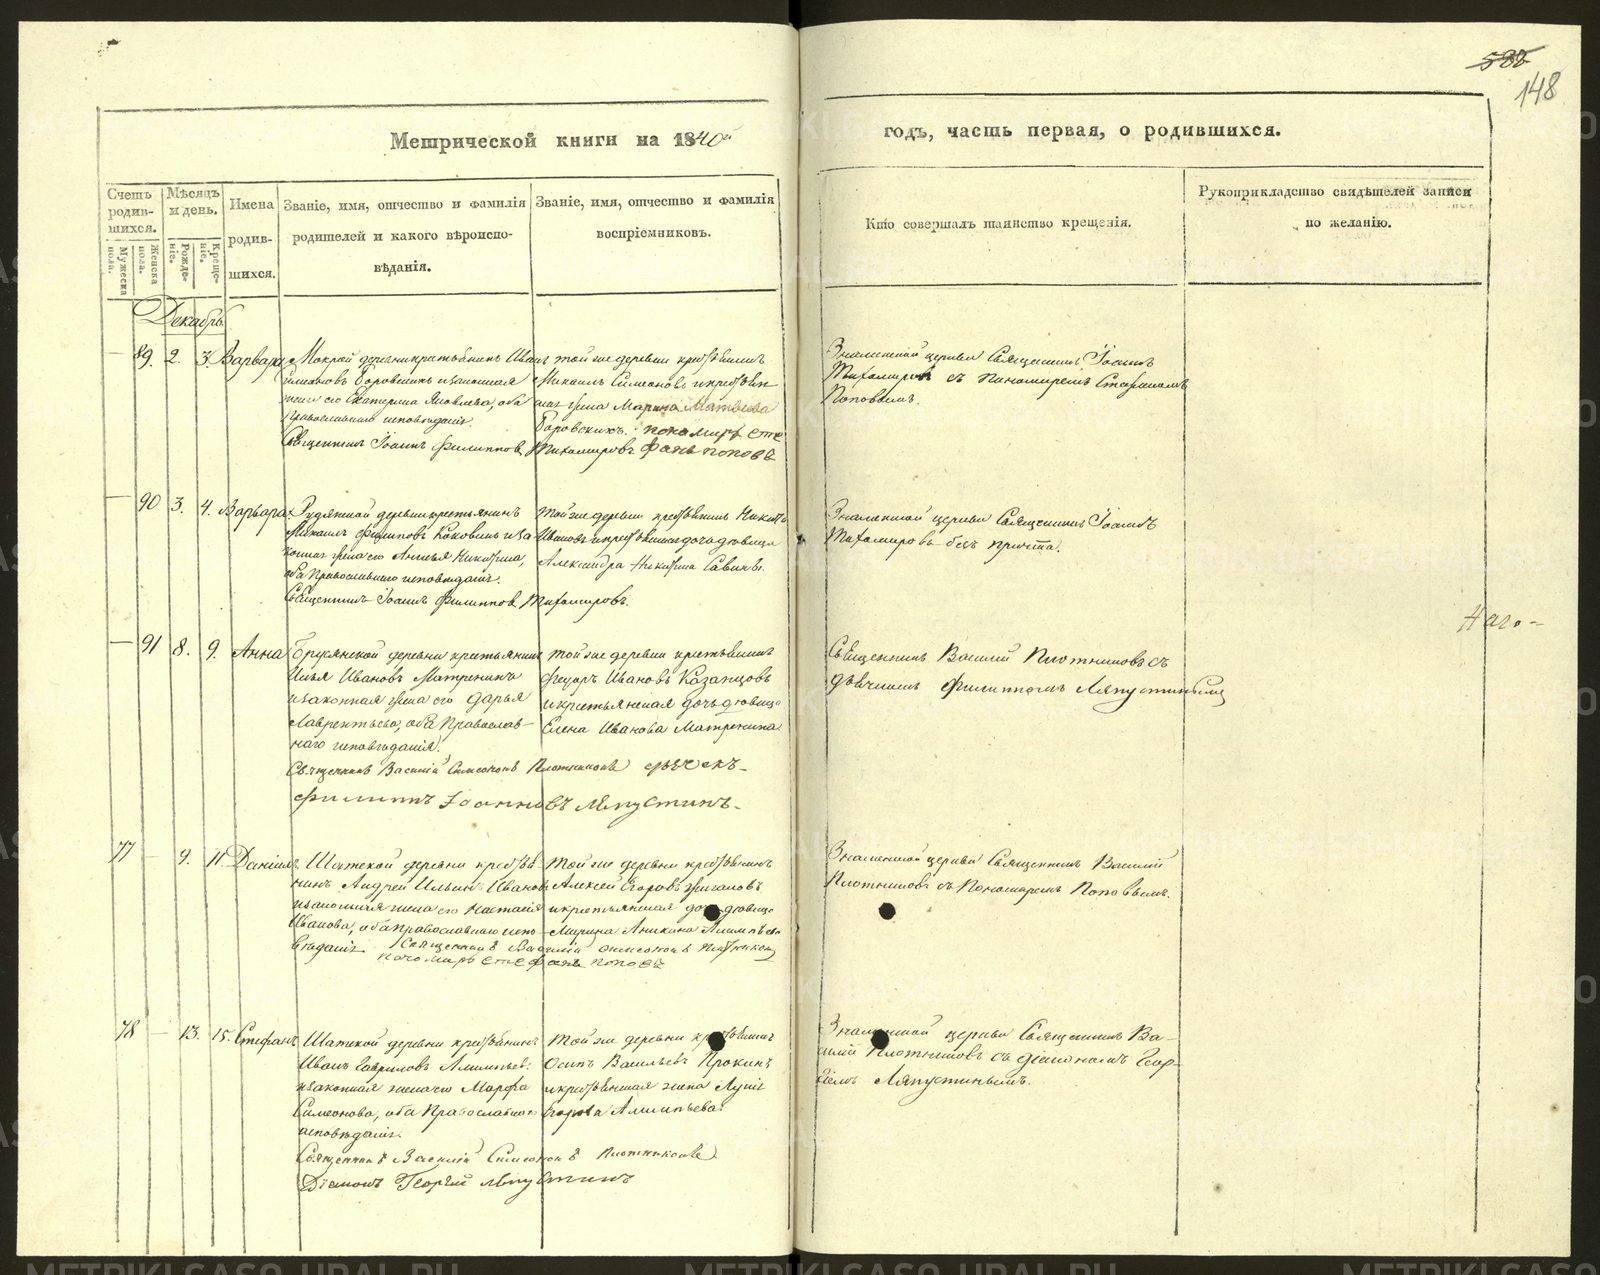 532
148
Метрической книги на 1840й
годъ, часть первая, о родившихся.
Счетъ родив- шихся.
Мужеска пола.
Женска пола.
Мѣсяцъ и день.
Рожде- ніе.
Креще- ніе.
Имена родив- шихся.
Званіе, имя, отчество и фамилія
родителей и какого вѣроиспо-
вѣданія.
Званіе, имя, отчество и фамилія
воспріемниковъ.
Кто совершалъ таинство крещенія.
Рукоприкладство свидѣтелей записи
по желанію.
Декабрь
89. 2. 3. Варвара
Мокрой деревни крестьянинъ Иванъ
Симеоновъ Боровскихъ и законная
жена его Екатерина Яковлева, оба
православнаго исповѣданія.
Священникъ Іоаннъ Филипповъ Тихомировъ
той же деревни крестьянинъ
Михаилъ Симеоновъ и крестьян
ская жена Марина Матвеева
Боровскихъ. пономарь Сте
фанъ Поповъ
Знаменской церкви Священникъ Іоаннъ
Тихомировъ съ Пономаремъ Стефаномъ
Поповымъ.
90 3. 4. Варвара
деревни крестьянинъ
Михаилъ Филиповъ и за
конная жена его Никитина,
оба Православнаго исповѣданія.
Священникъ Іоаннъ Филипповъ Тихомировъ.
Той же деревни крестьянинъ Никита
Ивановъ и крестьянская дочь дѣвица
Александра Никитина Савиныхъ.
Знаменской церкви Священникъ Іоаннъ
Тихомировъ безъ причта.
91 8. 9. Анна
Брусянской деревни крестьянинъ
Илья Ивановъ Матренинъ
и законная жена его Дарья
Лаврентьева, оба Православ-
наго исповѣданія.
Священникъ Василій Симеоновъ Плотниковъ дьячекъ
Филиппъ Іоанновъ Ляпустинъ
той же деревни крестьянинъ
Федоръ Ивановъ Казанцовъ
и крестьянская дочь дѣвица
Елена Иванова Матренина
Священникъ Василій Плотниковъ съ
дьячкомъ Филиппомъ Ляпустинымъ
Наго-
77 9. 11. Даніилъ
Шатской деревни крестья
нинъ Андрей Ильинъ Ивановъ
и законная жена его Настасія
Иванова, оба православнаго испо-
вѣданія. Священникъ Василій Симеоновъ Плотниковъ
пономарь Стефанъ Поповъ
Той же деревни крестьянинъ
Алексей Егоровъ
и крестьянская дочь дѣвица
Марина Аникина
Знаменской церкви Священникъ Василій
Плотниковъ съ Пономаремъ Поповымъ.
78 13. 15. Стефанъ
Шатской деревни крестьянинъ
Иванъ Гавриловъ
и законная жена его Марфа
Симеонова, оба Православнаго
исповѣданія.
Священникъ Василій Симеоновъ Плотниковъ
Діаконъ Георгій Ляпустинъ
той же деревни крестьянинъ
Осипъ Васильевъ Прокинъ
и крестьянская жена
Егорова
Знаменской церкви Священникъ Ва-
силій Плотниковъ съ діакономъ Геор-
гіемъ Ляпустинымъ.